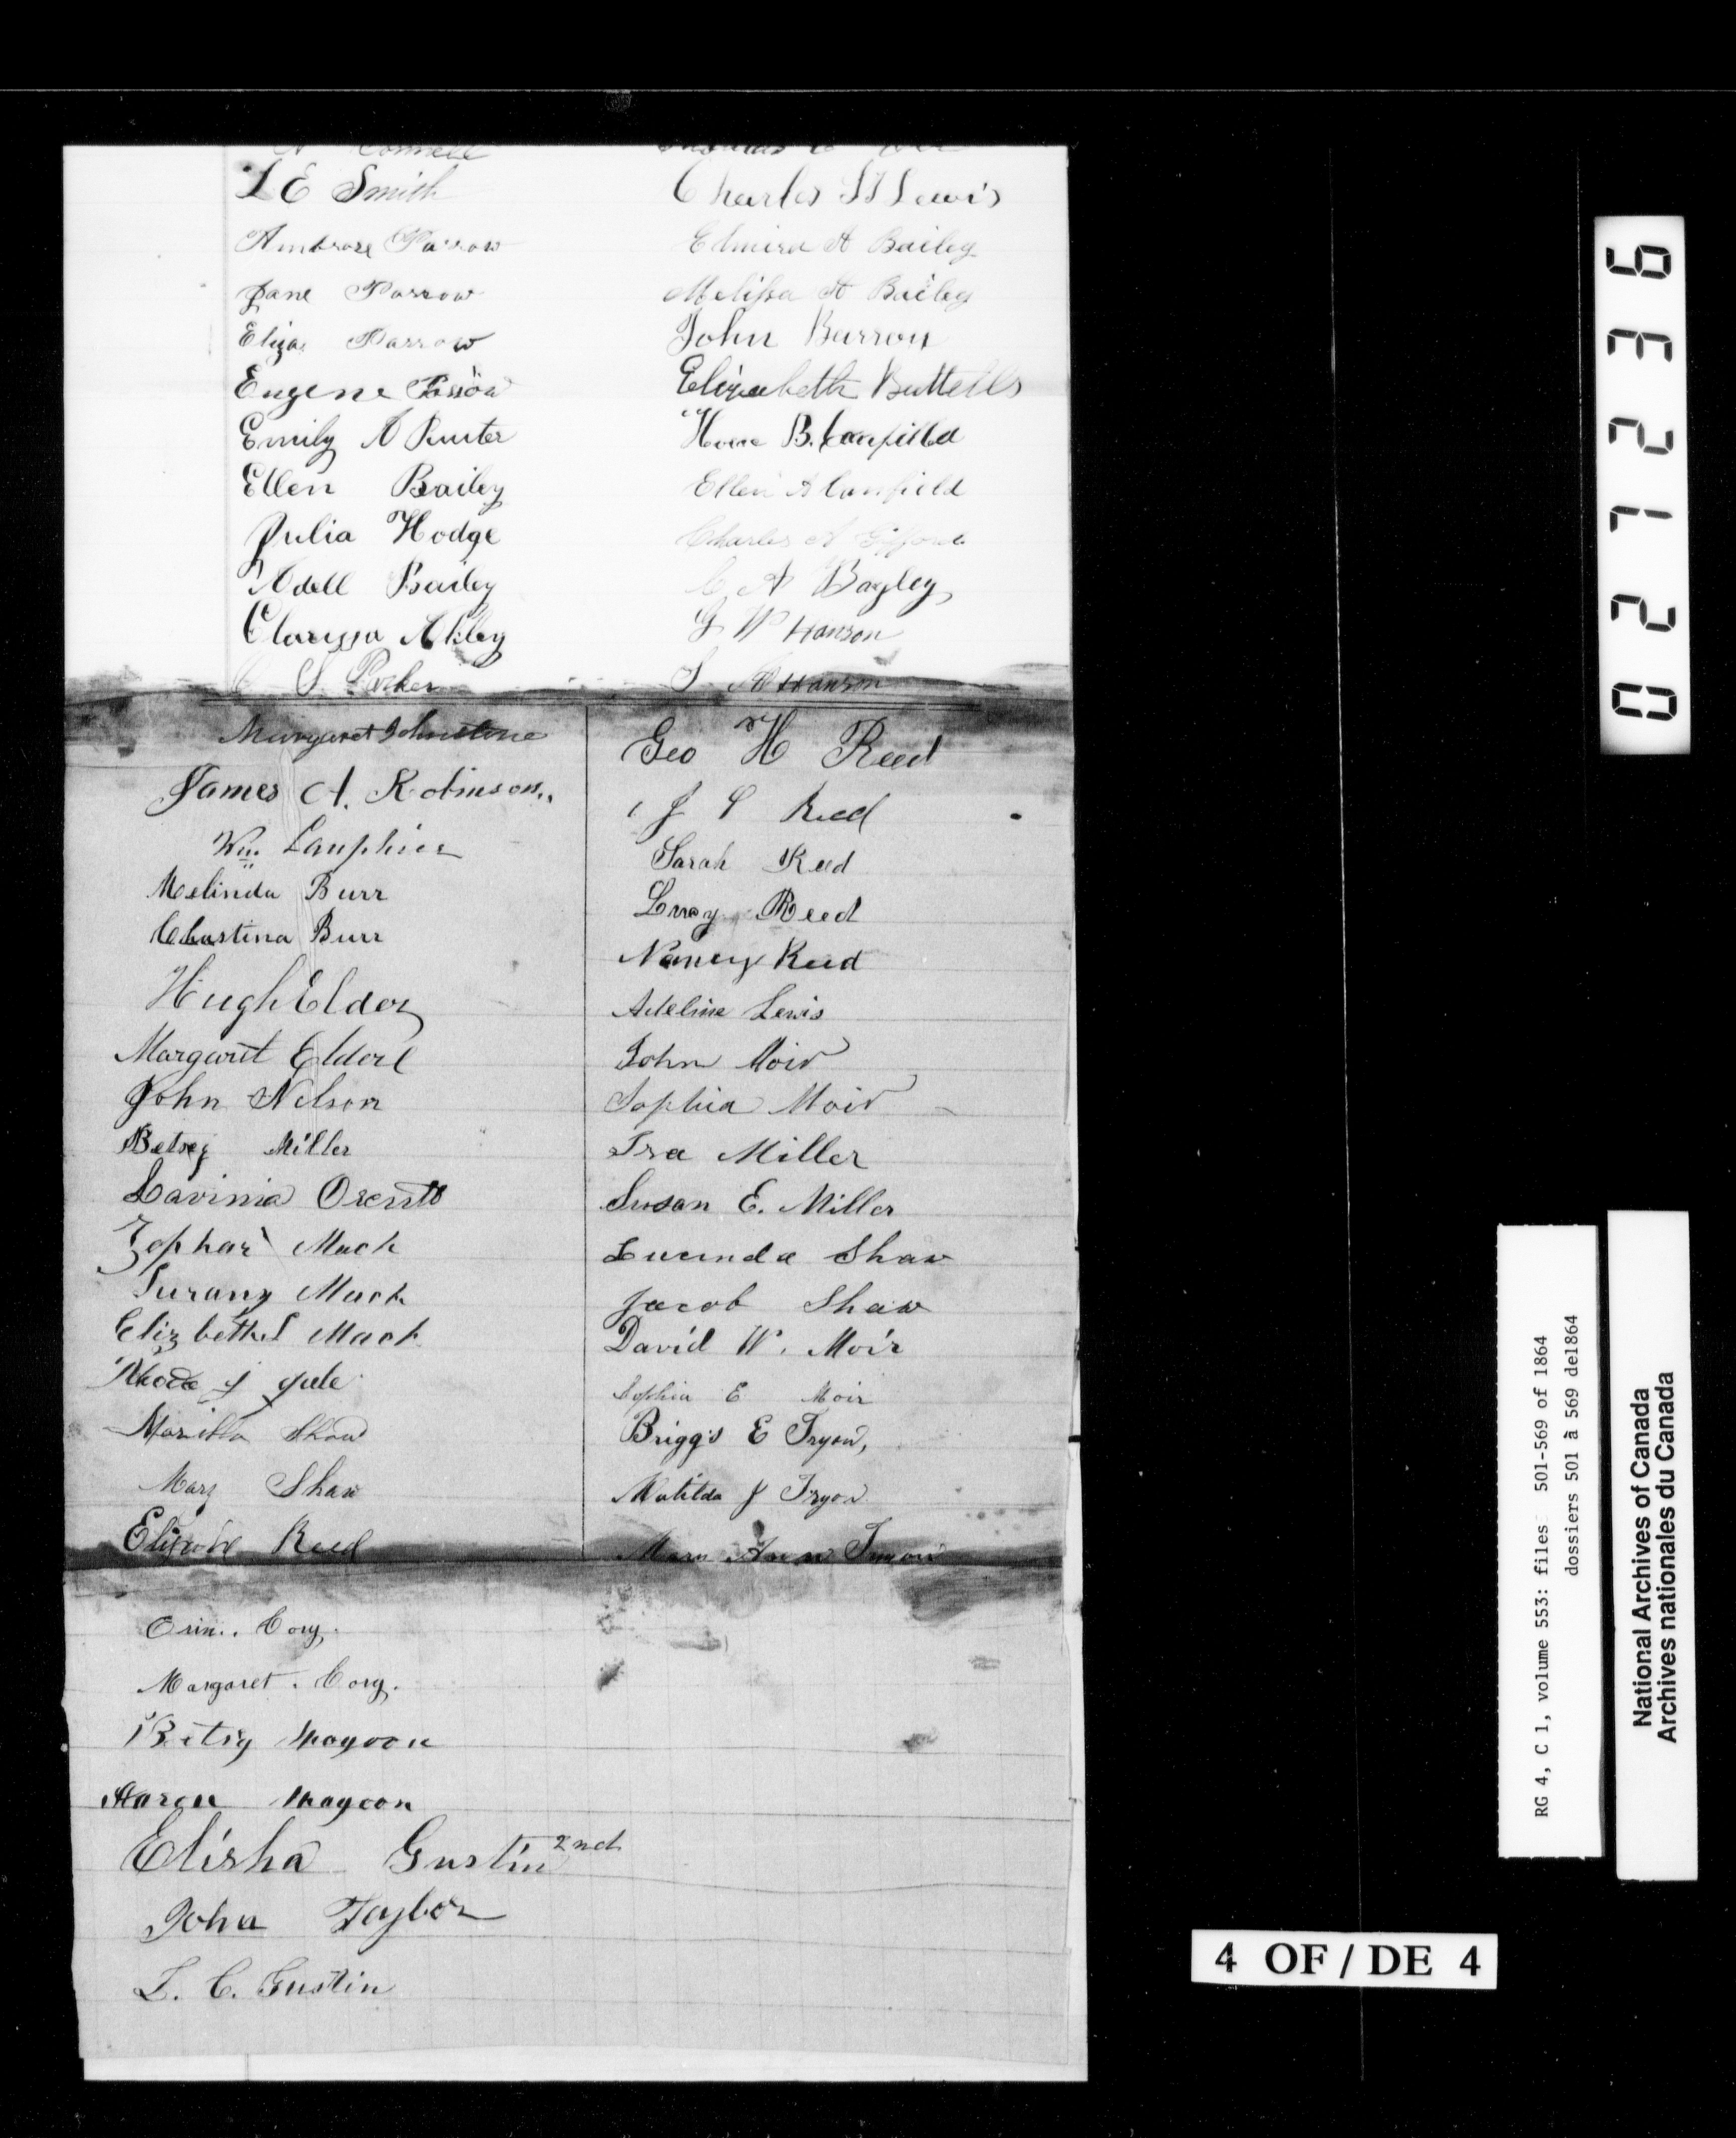 Connell
L E Smith
Ambrose Parrow
Jane Parrow
Eliza Parrow
Eugene
Emily A Ruiter
Ellen Bailey
Julia Hodge
Adell Bailey
Clarissa Akley
S. Parker
Charles H Lewis
Elmira A Bailey
Melissa A Bailey
John Barron
Elizabeth Buttells
B. Canfield
Ellen A Canfield
Charles A
C A Bagley
G W Hanson
S Hanson
Margaret Johnstone
James A. Robinson
Wm Lanphier
Melinda Burr
Burr
Hugh Elder
Margarit Elder
John Nelson
Betsey Miller
Lavinia
Zophar Mack
Surany Mack
Elizbethet Mack
Rhoda J
Marilla Shaw
Mary Shaw
Reed
Geo H Reed
J Reed
Sarah Reed
Leroy Reed
Nancy Reed
Adeline Lewis
John Moir
Sophia Moir
Ira Miller
Susan E. Miller
Lucinda Shaw
Jacob Shaw
David W. Moir
Sophia E Moir
Briggs E Tryon,
Matilda J Tryon
Mary Ann Tryon
Orin. Cory.
Margaret. Cory.
Betsy Magoon
Aaron Magoon
Elisha Gustin 2nd
John Taylor
L. C. Gustin
0 2 7 2 3 6
RG 4, C 1, volume 553: files 501-569 of 1864
dossiers 501 à 569 de1864
National Archives of Canada
Archives nationales du Canada
4 OF / DE 4